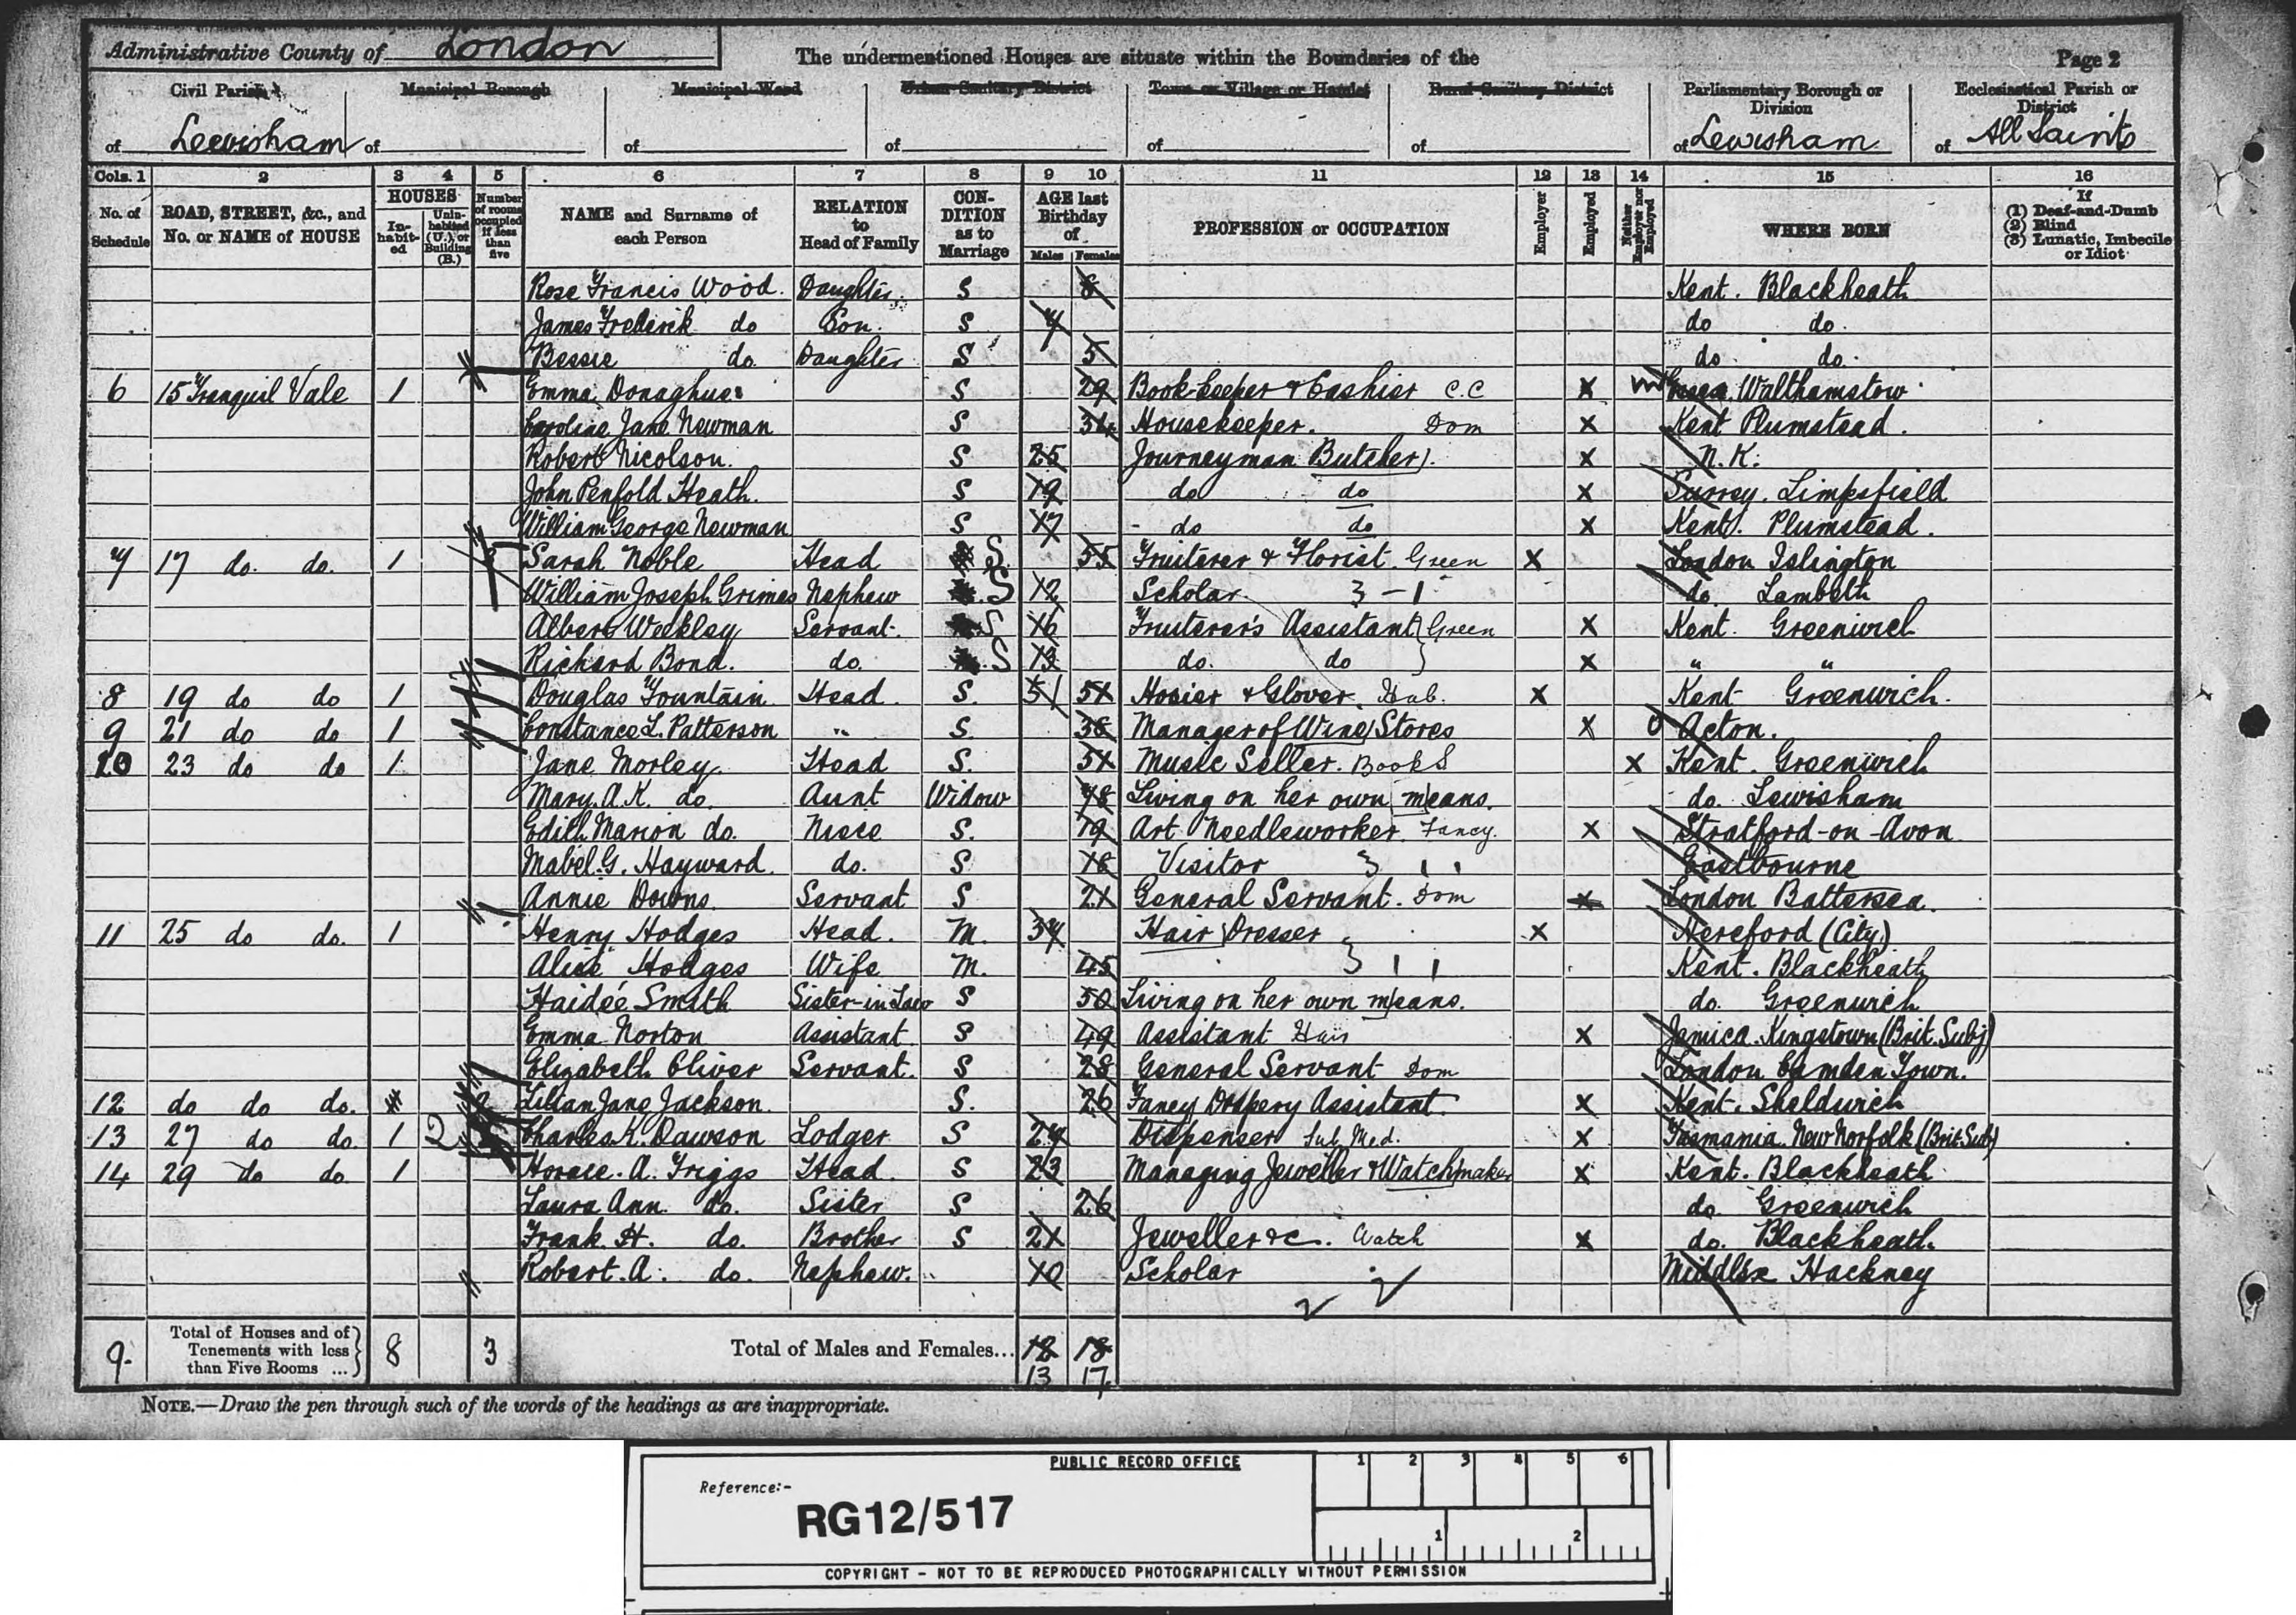 Administrative County of London
The undermentioned Houses are situate within the Boundaries of the
Page 2
Civil Parish Municipal Borough Municipal Ward Urban Sanitary District Town or Village or Hamlet Rural Sanitary District Parliamentary Borough or Division Ecclesiastical Parish or District
of Lewisham of of of of of of Lewisham of All Saints
Cols. 1 2 3 4 5 6 7 8 9 10 11 12 13 14 15 16
No. of Schedule ROAD, STREET, &c., and No. or NAME of HOUSE HOUSES In-habit-ed Unin-habited (U.) or Building (B.) Number of rooms occupied if less than five NAME and Surname of each Person RELATION to Head of Family CON-DITION as to Marriage AGE last Birthday of Males Females PROFESSION or OCCUPATION Employer Employed Neither Employer nor Employed WHERE BORN If (1) Deaf-and-Dumb (2) Blind (3) Lunatic, Imbecile or Idiot
Rose Francis Wood. Daughter S 8 Kent. Blackheath
James Frederik do Son. S 7 do do.
Bessie do. Daughter S 5 do do.
6 15 Tranquil Vale 1 Emma Donaghue S 29 Book-keeper & Cashier C.C X Essex. Walthamstow
Caroline Jane Newman S 34 Housekeeper. Dom X Kent Plumstead.
Robert Nicolson. S 25 Journeyman Butcher X N.K.
John Penfold Heath. S 19 do do X Surrey. Limpsfield
William George Newman S 17 do do X Kent. Plumstead.
7 17 do. do. 1 Sarah Noble Head S 55 Fruiterer & Florist. Green X London Islington
William Joseph Grimes Nephew S 12 Scholar - 1 do. Lambeth
Albert Weekley Servant. S 16 Fruiterer's Assistant Green X Kent. Greenwich
Richard Bond. do. S 13 do. do X " "
8 19 do do 1 Douglas Fountain Head. S. 51 51 Hosier & Glover. Hab. X Kent Greenwich.
9 21 do do 1 Constance L. Patterson " S. 38 Manager of Wine Stores X O Acton.
10 23 do do 1 Jane Morley. Head S. 51 Music Seller. Books X Kent. Greenwich
Mary. A. K. do. Aunt Widow 78 Living on her own means. do. Lewisham
Edith Marion do. Niece S. 19 Art Needleworker. Fancy. X Stratford-on-Avon
Mabel. G. Hayward. do. S 18 Visitor Eastbourne
Annie Downs. Servant S 21 General Servant. Dom X London Battersea.
11 25 do do. 1 Henry Hodges Head. M. 37 Hair Dresser X Hereford (City)
Alice Hodges Wife M. 45 Kent. Blackheath
Haidée Smith Sister-in-Law S 50 Living on her own means. do. Greenwich
Emma Norton Assistant S 49 Assistant Hair X Jamica. Kingstown (Brit. Subj)
Elizabeth Oliver Servant. S 28 General Servant Dom London Camden Town.
12 do do do. Lilian Jane Jackson. S. 26 Fancy Drapery Assistant. X Kent. Sheldwich
13 27 do do. 1 2 Charles K. Dawson Lodger S 24 Dispenser Sub. Med. X Tasmania. New Norfolk (Brit. Sub)
14 29 do do. 1 Horace. A. Friggs Head. S 23 Managing Jeweller & Watchmaker X Kent. Blackheath
Laura Ann. do. Sister S 26 do. Greenwich
Frank. H. do. Brother S 21 Jeweller &c. Watch X do. Blackheath.
Robert. A. do. Nephew. 10 Scholar Middlsx Hackney
9. Total of Houses and of Tenements with less than Five Rooms ... 8 3 Total of Males and Females... 18
13 17
NOTE.—Draw the pen through such of the words of the headings as are inappropriate.
PUBLIC RECORD OFFICE
1 2 3 4 5 6
Reference:-
RG12/517
1 2
COPYRIGHT - NOT TO BE REPRODUCED PHOTOGRAPHICALLY WITHOUT PERMISSION